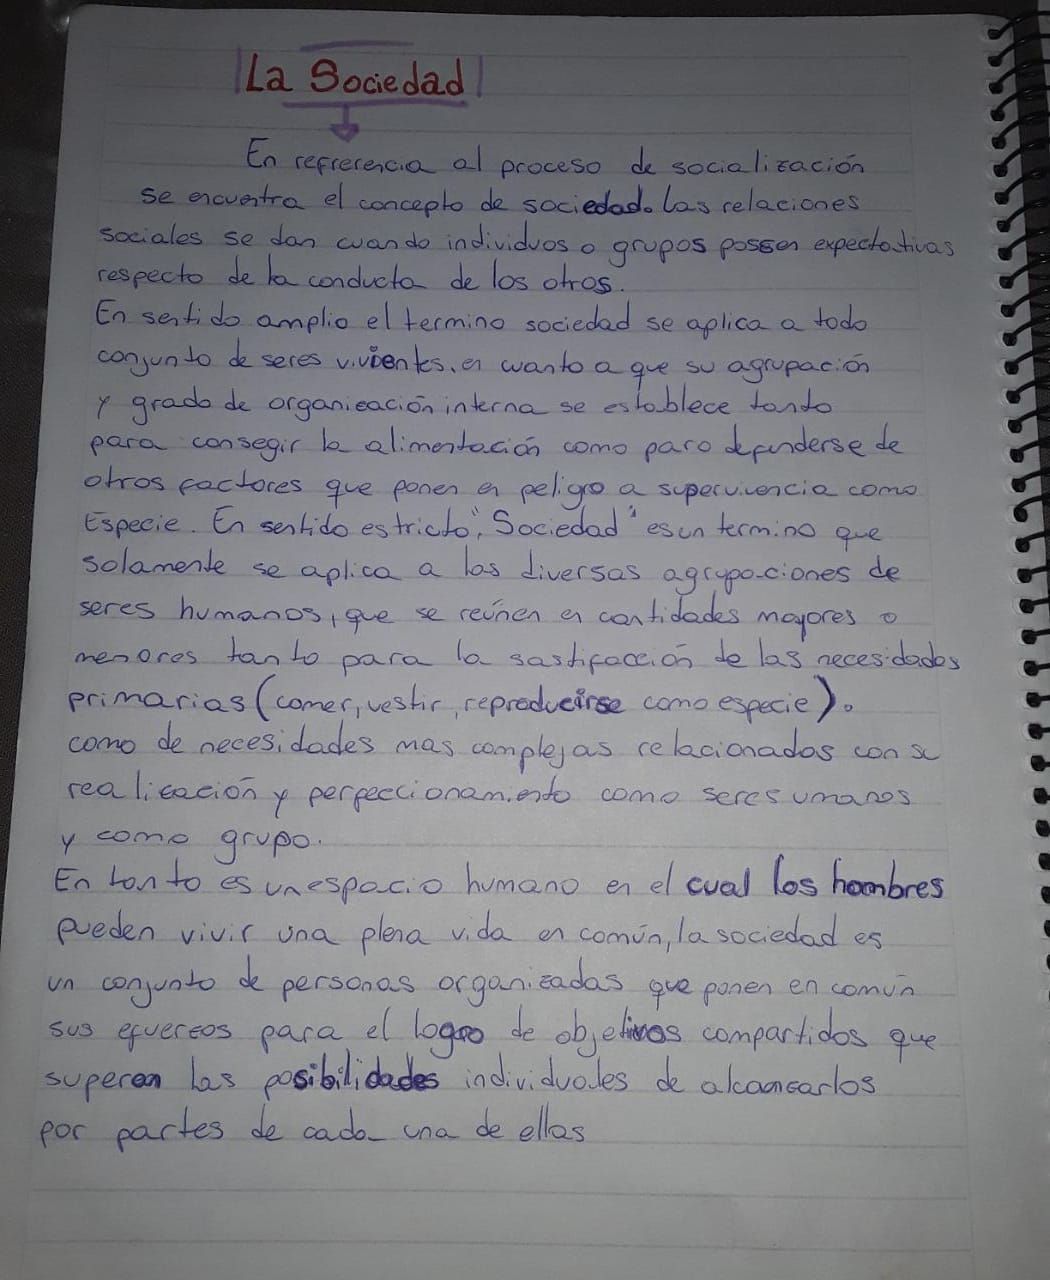 La Sociedad
En refrerencia al proceso de socialización
se encuentra el concepto de sociedad. Las relaciones
sociales se dan cuando individuos o grupos possen expectativas
respecto de la conducta de los otros.
En sentido amplio el termino sociedad se aplica a todo
conjunto de seres vivientes, en cuanto a que su agrupación
y grado de organización interna se establece tanto
para consegir la alimentación como para defenderse de
otros factores que ponen en peligro a supervivencia como
Especie. En sentido estricto, "Sociedad" es un termino que
solamente se aplica a las diversas agrupaciones de
seres humanos, que se reúnen en cantidades mayores o
menores tanto para la sastifacción de las necesidades
primarias (comer, vestir, reproducirse como especie).
como de necesidades mas complejas relacionados con su
realización y perfeccionamiento como seres umanos
y como grupo.
En tanto es un espacio humano en el cual los hombres
pueden vivir una plena vida en común, la sociedad es
un conjunto de personas organizadas que ponen en común
sus efuerzos para el logro de objetivos compartidos que
superan las posibilidades individuales de alcanzarlos
por partes de cada una de ellas